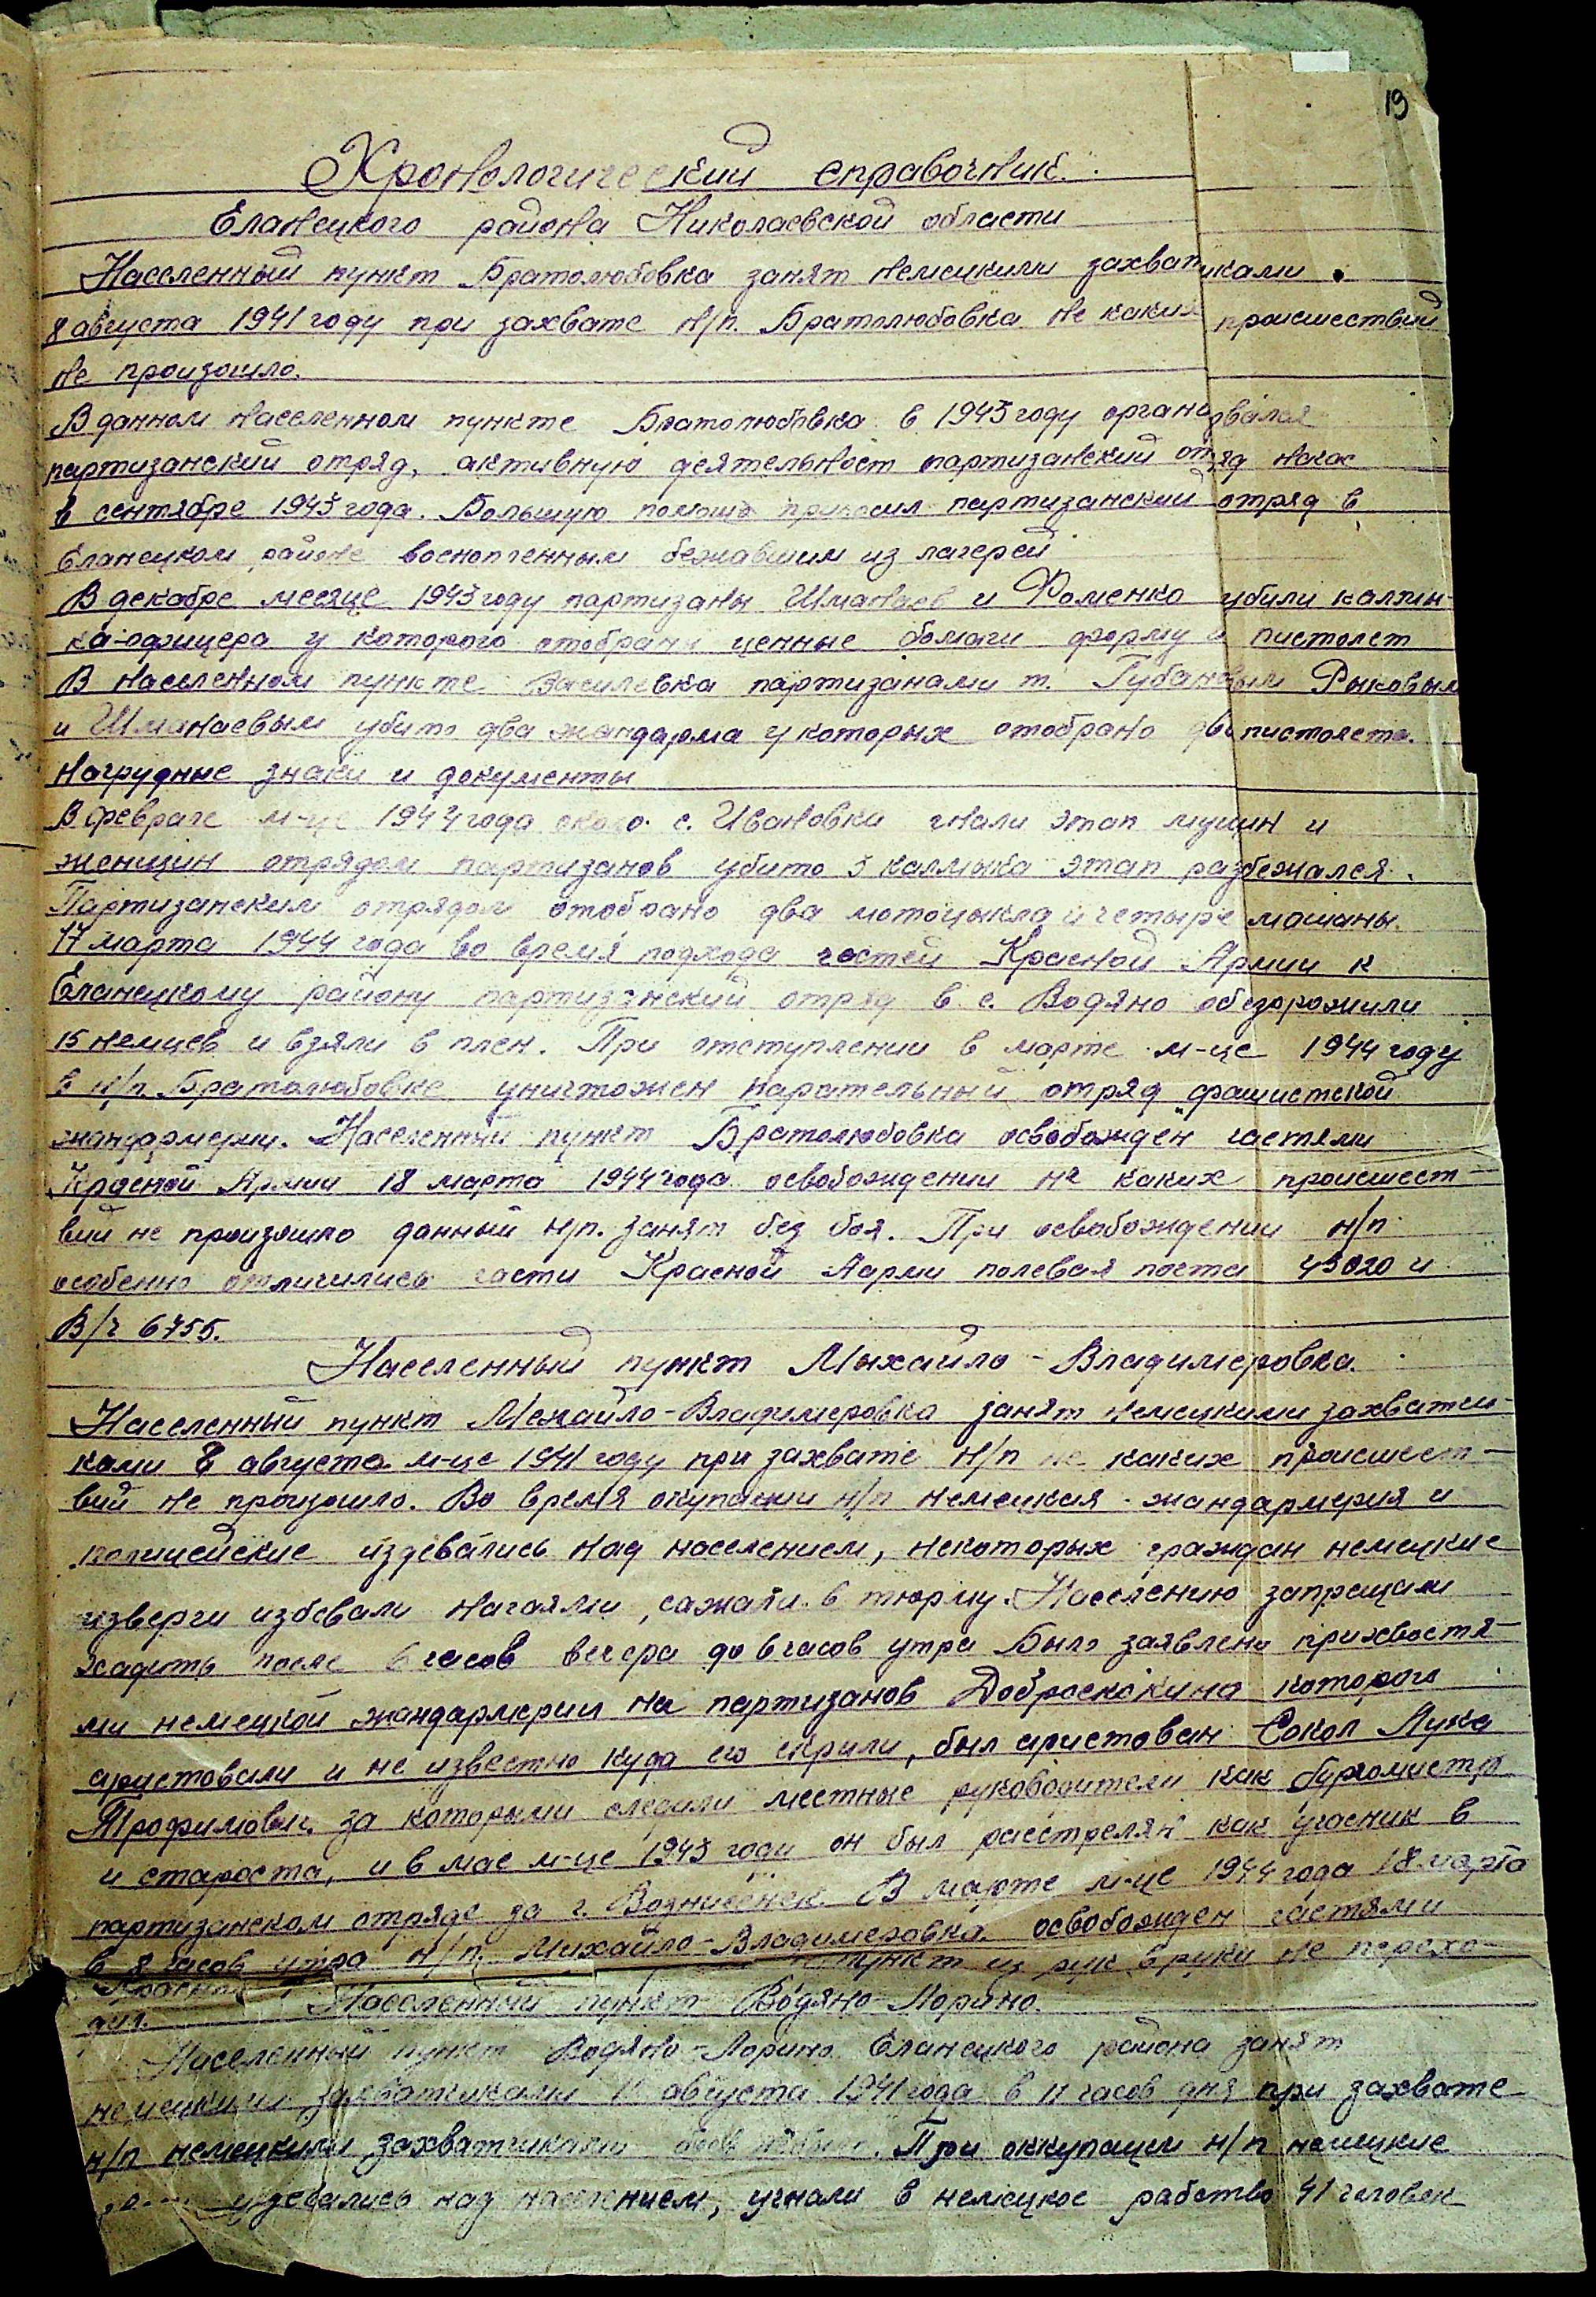 19
Хронологический справочник.
Еланецкого района Николаевской области
Населенный пункт Братолюбовка занят немецкими захватиками.
8 августа 1941 году при захвате н/п. Братолюбовка не каких происшествий
не произошло.
В данном населенном пункте Братолюбовка в 1943 году организвался
партизанский отряд, активную деятельност партизанский отряд начас
в сентябре 1943 года. Большую помощь приносил партизанский отряд в
Еланецком районе военопленным бежавшим из лагерей
В декабре месяце 1943 году партизаны Шманаев и Фоменко убили калмы-
ка-офицера у которого отобрани ценные бомаги форму и пистолет
В населенном пункте Василевка партизанами т. Губановым Рыковым
и Шманаевым убито два жандарма у которых отобрано два пистолета.
нагрудные знаки и документы
В феврале м-це 1944 года около с. Ивановки гнали этап мущин и
женщин отрядом партизанов убито 3 калмыка этап разбежался.
Партизанским отрядом отобрано два мотоцыкла и четыре машаны.
17 марта 1944 года во время подхода частей Красной Армии к
Еланецкому району партизанский отряд в с. Водяно обезорожили
15 немцев и взяли в плен. При отступлении в марте м-це 1944 году
в н/п. Братолюбовке уничтожен карательный отряд фашистской
жандармерии. Населенный пункт Братолюбовка освобожден частями
Красной Армии 18 марта 1944 года освобождении не каких происшест-
вий не произошло данный н/п. занят без боя. При освобождении н/п
особенно отличились части Красной Аарми полевая почта 43020 и
В/ч 6755.
Населенный пункт Мыхайло-Владимеровка.
Населенный пункт Мехайло-Владимеровка занят немецкими захватчи-
ками 8 августа м-це 1941 году при захвате н/п не каких происшест-
вий не произошло. Во время окупации н/п немецкая жандармерия и
полицейские издевались над населением, некоторых граждан немецкие
изверги избевали нагаями, сажали в тюрму. Населению запрещали
хадить после 6 часов вечера до 6 часов утра Было заявлено прихвостя-
ми немецкой жандармерии на партизанов Доброскокина которого
аристовали и не известно куда его скрили, был аристован Сокол Лука
Трофимович. за которыми следили местные руководители как бургомистр
и староста, и в мае м-це 1943 года он был расстрелян как учасник в
партизанском отряде за г. Возниченск. В марте м-це 1944 года 18 марта
в 8 часов утра н/п. Михайло-Владимеровка. освобожден частями
пункт из рук в руки не перехо-
дил.
Населенный пункт Водяно-Лорино.
Населенный пункт Водяно-Лорино Еланецкого района занят
немецкими захватчиками августа 1941 года в 11 часов дня при захвате
н/п немецкими захватчиками При оккупации н/п немецкие
издевались над населением, угнали в немецкое рабство 41 человек